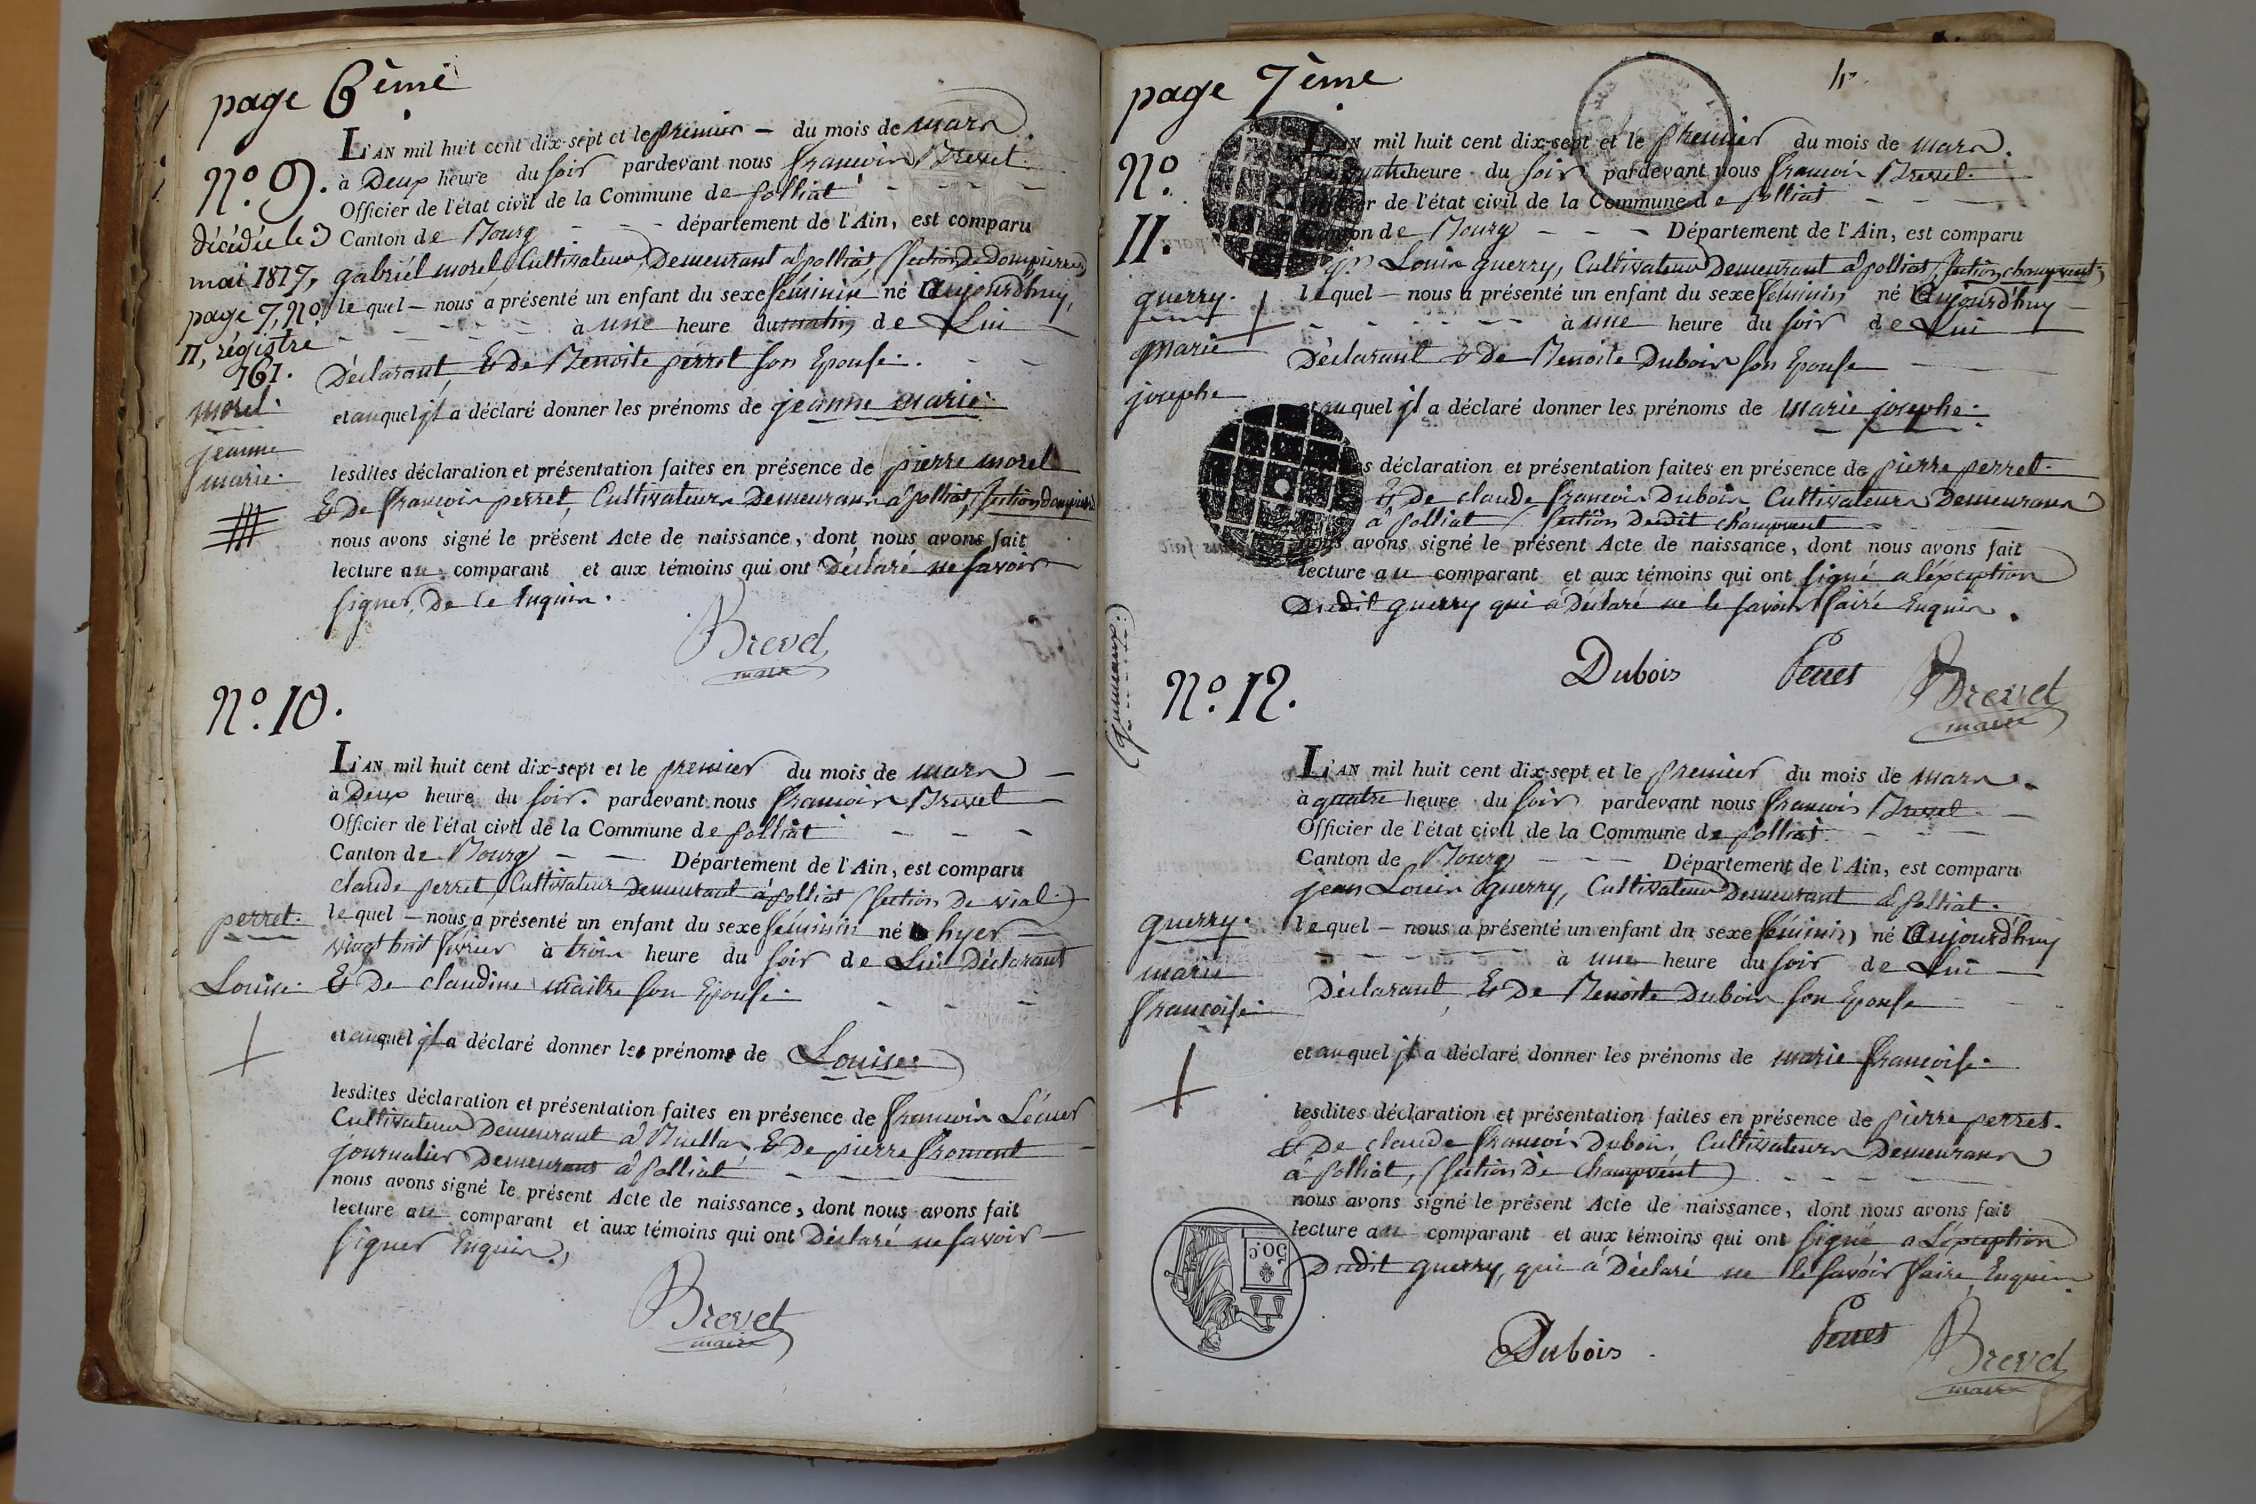 page 6ème
N.º 9.
décédée le 3
mai 1817,
page 7, Nº
11, régistre
161.
morel.
jeanne
marie.
L'AN mil huit cent dix-sept et le premier - du mois de mars.
à Deux heure du soir pardevant nous françois Brevet.
Officier de l'état civil de la Commune de polliat
Canton de Bourg - - département de l'Ain, est comparu
gabriël morel, Cultivateur Demeurant à polliat, (section de Dompierre)
lequel - nous a présenté un enfant du sexe féminin né aujourd'huy,
à une heure du matin de Lui
Déclarant, & De Benoite perret son Epouse.
et auquel jl a déclaré donner les prénoms de jeanne marie.
lesdites déclaration et présentation faites en présence de pierre morel
& De françois perret, Cultivateurs Demeurans à polliat, (section dompierre
nous avons signé le présent Acte de naissance, dont nous avons fait
lecture au comparant et aux témoins qui ont Déclaré ne savoir
signer, De ce Enquis.
Brevet
maire
N.º 10.
perret.
Louise.
L'AN mil huit cent dix-sept et le premier du mois de mars
à Deux heure du soir. pardevant nous françois Brevet
Officier de l'état civil de la Commune de polliat
Canton de Bourg - - Département de l'Ain, est comparu
claude perret, Cultivateur Demeurant à polliat (section De vial.)
lequel - nous a présenté un enfant du sexe féminin né hyer
vingt huit février à trois heure du soir de Lui Déclarant
& De claudine maitre son Epouse.
et auquel jl a déclaré donner les prénoms de Louise.
lesdites déclaration et présentation faites en présence de françois Lécuer
Cultivateur Demeurant à Buellas, & De pierre froment
journalier Demeurans à polliat
nous avons signé le présent Acte de naissance, dont nous avons fait
lecture au comparant et aux témoins qui ont Déclaré ne savoir
signer Enquis.
Brevet
maire
page 7ème
N.º
11.
guerry.
marie
josephe
L'AN mil huit cent dix-sept et le premier du mois de mars.
heure du soir pardevant nous françois Brevet.
de l'état civil de la Commune de polliat
Canton de Bourg - - - Département de l'Ain, est comparu
Louis guerry, Cultivateur Demeurant à polliat, (section champvent)
lequel - nous a présenté un enfant du sexe féminin né aujourd'huy
à une heure du soir de Lui
Déclarant & De Benoite Dubois son Epouse
et auquel jl a déclaré donner les prénoms de marie josephe.
déclaration et présentation faites en présence de pierre perret.
& De claude françois Dubois, Cultivateurs Demeurans
à polliat (section Dudit champvent
nous avons signé le présent Acte de naissance, dont nous avons fait
lecture au comparant et aux témoins qui ont signé a l'éxception
Dudit guerry qui a Déclaré ne le savoir faire Enquis.
Dubois
Perret
Brevet
maire
(jumeaux.)
N.º 12.
guerry.
marie
françoise.
L'AN mil huit cent dix-sept et le premier du mois de mars.
à quatre heure du soir pardevant nous françois Brevet
Officier de l'état civil de la Commune de polliat
Canton de Bourg - - - Département de l'Ain, est comparu
jean Louis guerry, Cultivateur Demeurant à polliat.
lequel - nous a présenté un enfant du sexe féminin, né aujourd'huy
à une heure du soir de Lui
Déclarant, & De Benoite Dubois son Epouse
et auquel jl a déclaré donner les prénoms de marie françoise.
lesdites déclaration et présentation faites en présence de pierre perret.
& De claude françois Dubois, Cultivateurs Demeurans
à polliat, (section De champvent)
nous avons signé le présent Acte de naissance, dont nous avons fait
lecture au comparant et aux témoins qui ont signé a L'éxception
Dudit guerry, qui a Déclaré ne le savoir faire, Enquis.
50c.
Dubois.
Perret
Brevet
maire